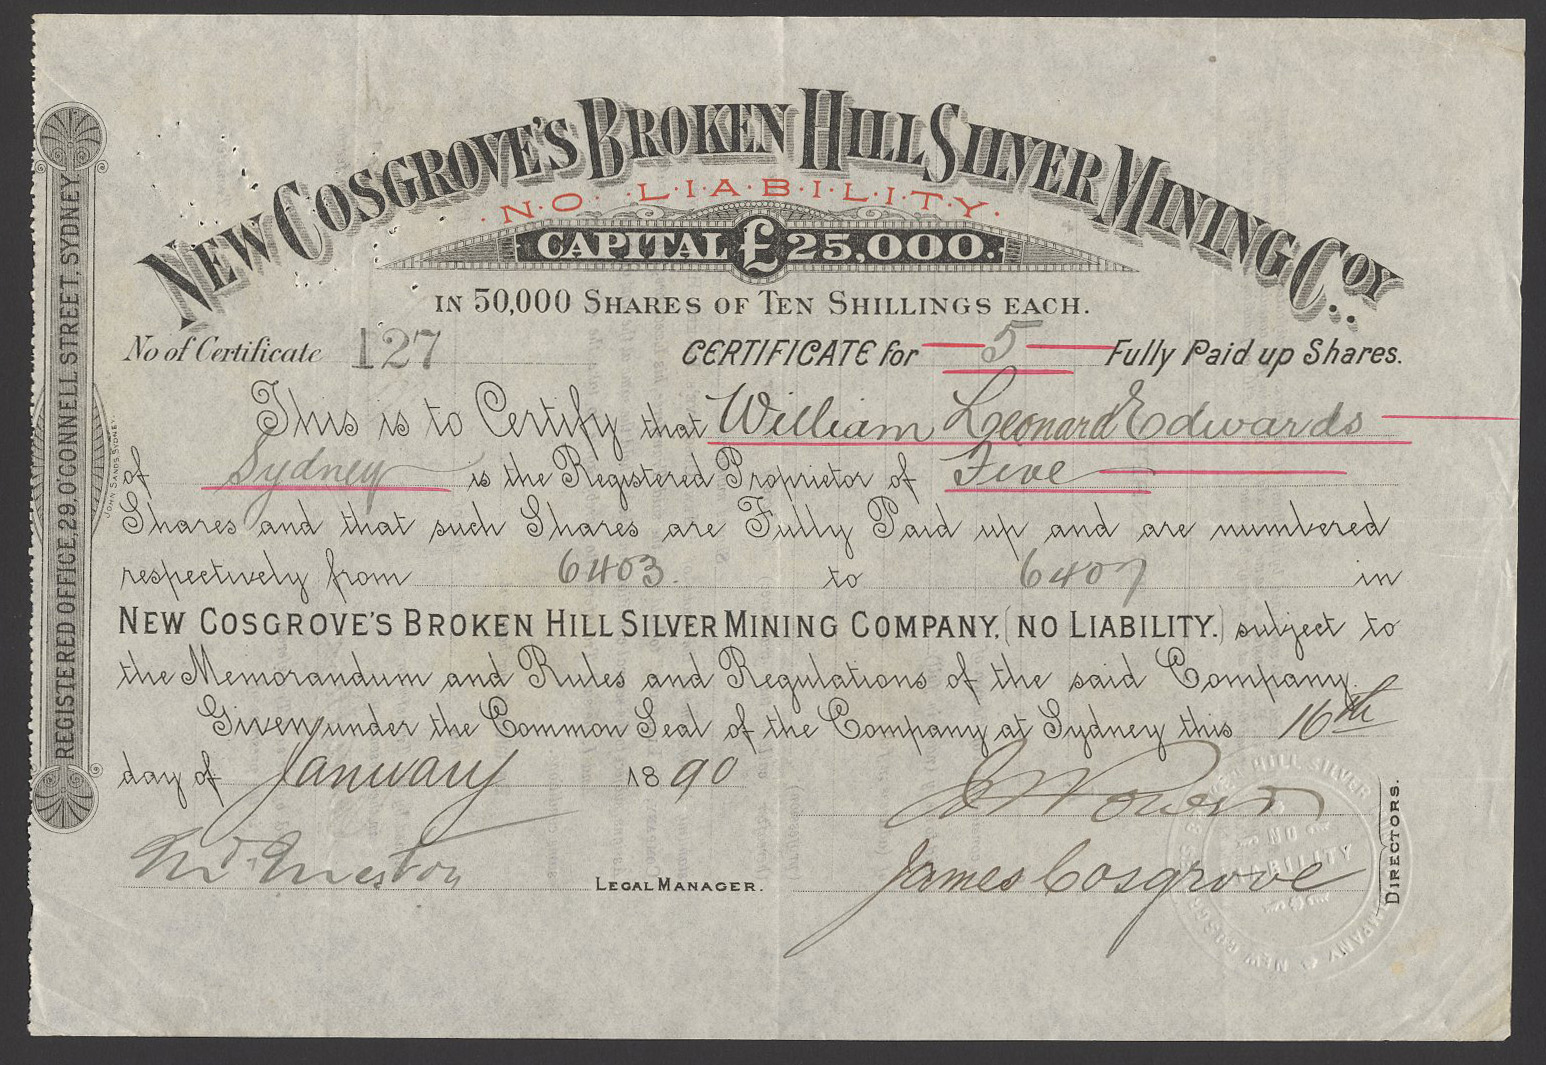 NEW COSGROVE'S BROKEN HILL SILVER MINING COY.
NO LIABILITY.
CAPITAL £25,000.
IN 50,000 SHARES OF TEN SHILLINGS EACH.
No of Certificate 127 CERTIFICATE for 5 Fully Paid up Shares.
This is to Certify that William Leonard Edwards
of Sydney is the Registered Proprietor of Five
Shares and that such Shares are Fully Paid up and are numbered
respectively from 6403. to 6407 in
NEW COSGROVE'S BROKEN HILL SILVER MINING COMPANY, (NO LIABILITY.) subject to
the Memorandum and Rules and Regulations of the said Company.
Given under the Common Seal of the Company at Sydney this 16th
day of January 1890
James Cosgrove
LEGAL MANAGER.
DIRECTORS.
REGISTERED OFFICE, 29, O'CONNELL STREET, SYDNEY
JOHN SANDS, SYDNEY.
NEW COSGROVE'S BROKEN HILL SILVER COMPANY
NO
LIABILITY